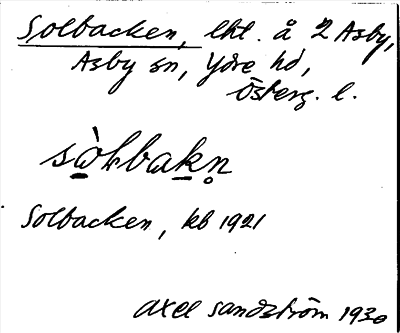 Solbacken, lht. å 2 Asby,
Asby sn, Ydre hd,
Österg. l.
sòḷbakn̥
Solbacken, kb 1921
Axel Sandström 1930